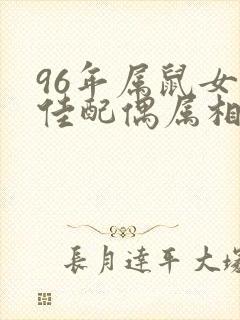 96年属鼠女
佳配偶属相
長月達平大塚